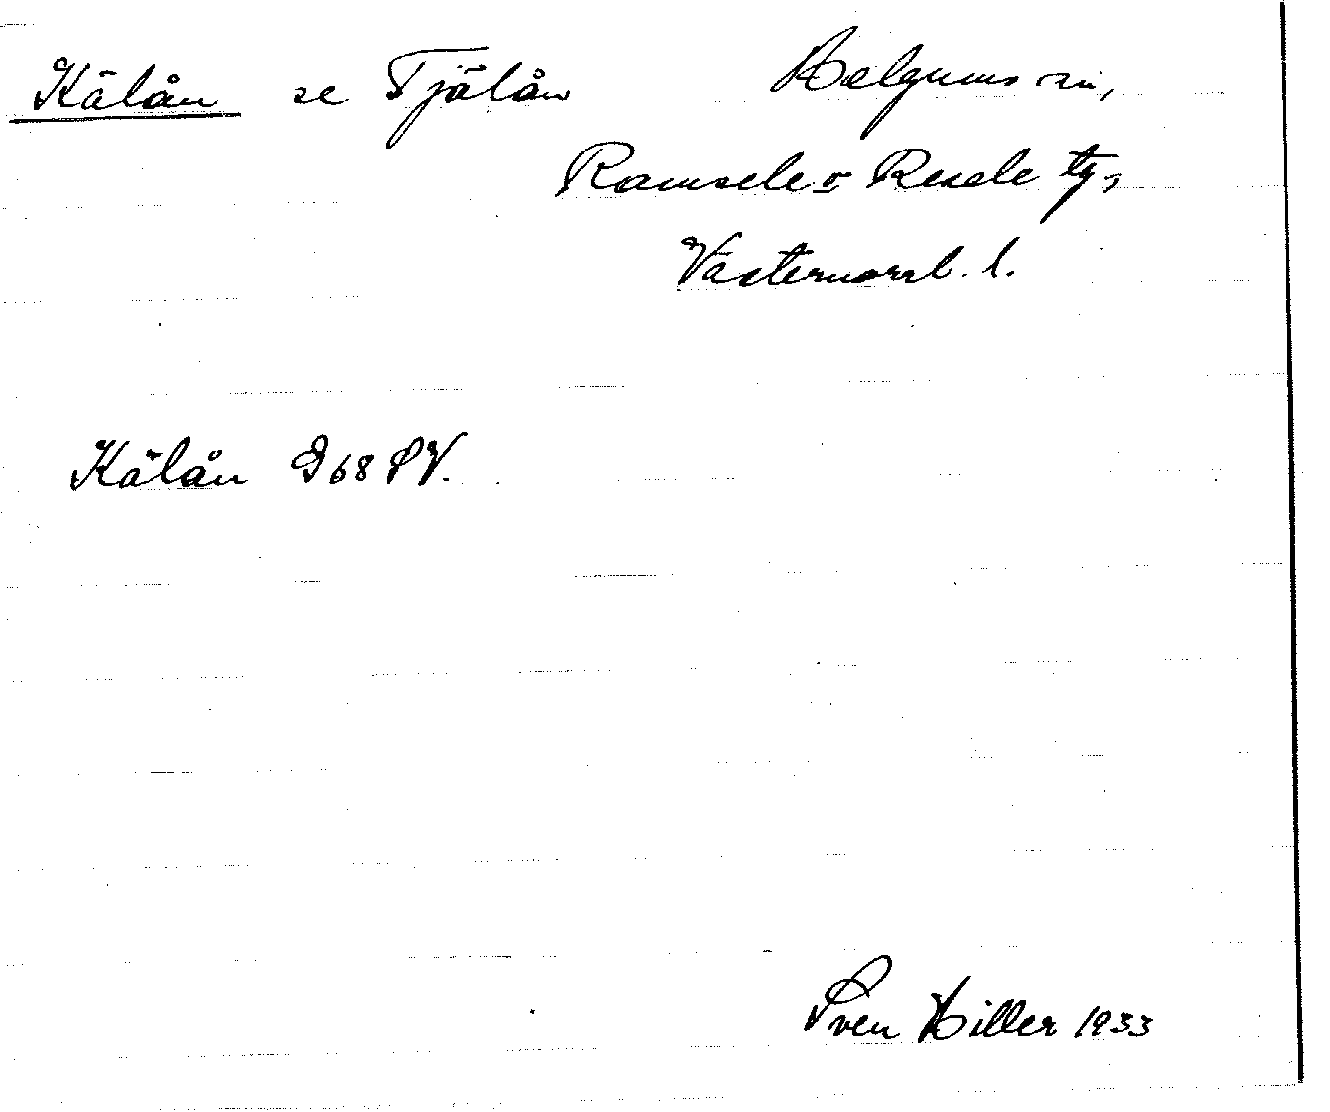 Kälån se Tjälån Helgums sn,
Ramsele o Resele tg,
Västernorrl. l.
Kälån G68 SV.
Sven Hiller 1933